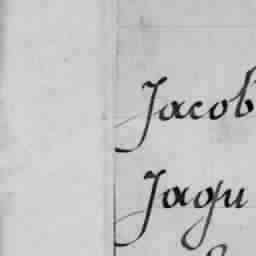 Jacob
Jagu